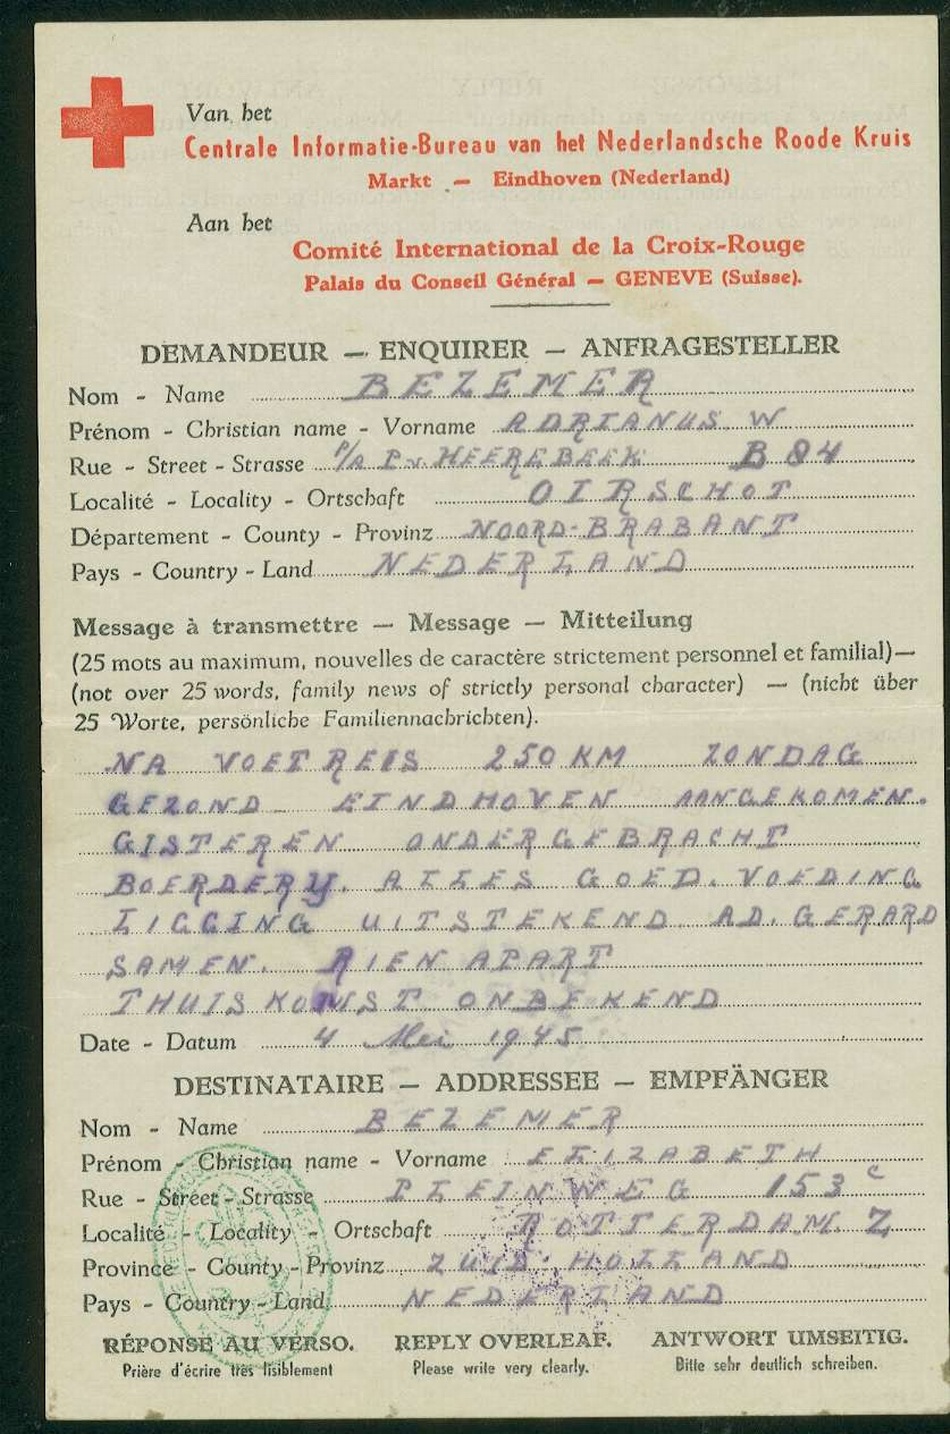 Van het
Centrale Informatie-Bureau van het Nederlandsche Roode Kruis
Markt — Eindhoven (Nederland)
Aan het
Comité International de la Croix-Rouge
Palais du Conseil Général — GENEVE (Suisse).
DEMANDEUR — ENQUIRER — ANFRAGESTELLER
Nom - Name BEZEMER
Prénom - Christian name - Vorname ADRIANUS W
Rue - Street - Strasse P/A P v HEEREBEEK B 84
Localité - Locality - Ortschaft OIRSCHOT
Département - County - Provinz NOORD-BRABANT
Pays - Country - Land NEDERLAND
Message à transmettre — Message — Mitteilung
(25 mots au maximum, nouvelles de caractère strictement personnel et familial)—
(not over 25 words, family news of strictly personal character) — (nicht über
25 Worte, persönliche Familiennachrichten).
NA VOETREIS 250 KM ZONDAG
GEZOND EINDHOVEN AANGEKOMEN.
GISTEREN ONDERGEBRACHT
BOERDERY. ALLES GOED. VOEDING
LIGGING UITSTEKEND. AD. GERARD
SAMEN. RIEN APART
THUISKOMST ONBEKEND
Date - Datum 4 Mei 1945
DESTINATAIRE — ADDRESSEE — EMPFÄNGER
Nom - Name BEZEMER
Prénom - Christian name - Vorname ELIZABETH
Rue - Street - Strasse PLEINWEG 153 c
Localité - Locality - Ortschaft ROTTERDAM Z
Province - County - Provinz ZUID-HOLLAND
Pays - Country - Land NEDERLAND
RÉPONSE AU VERSO. REPLY OVERLEAF. ANTWORT UMSEITIG.
Prière d'écrire très lisiblement Please write very clearly. Bitte sehr deutlich schreiben.